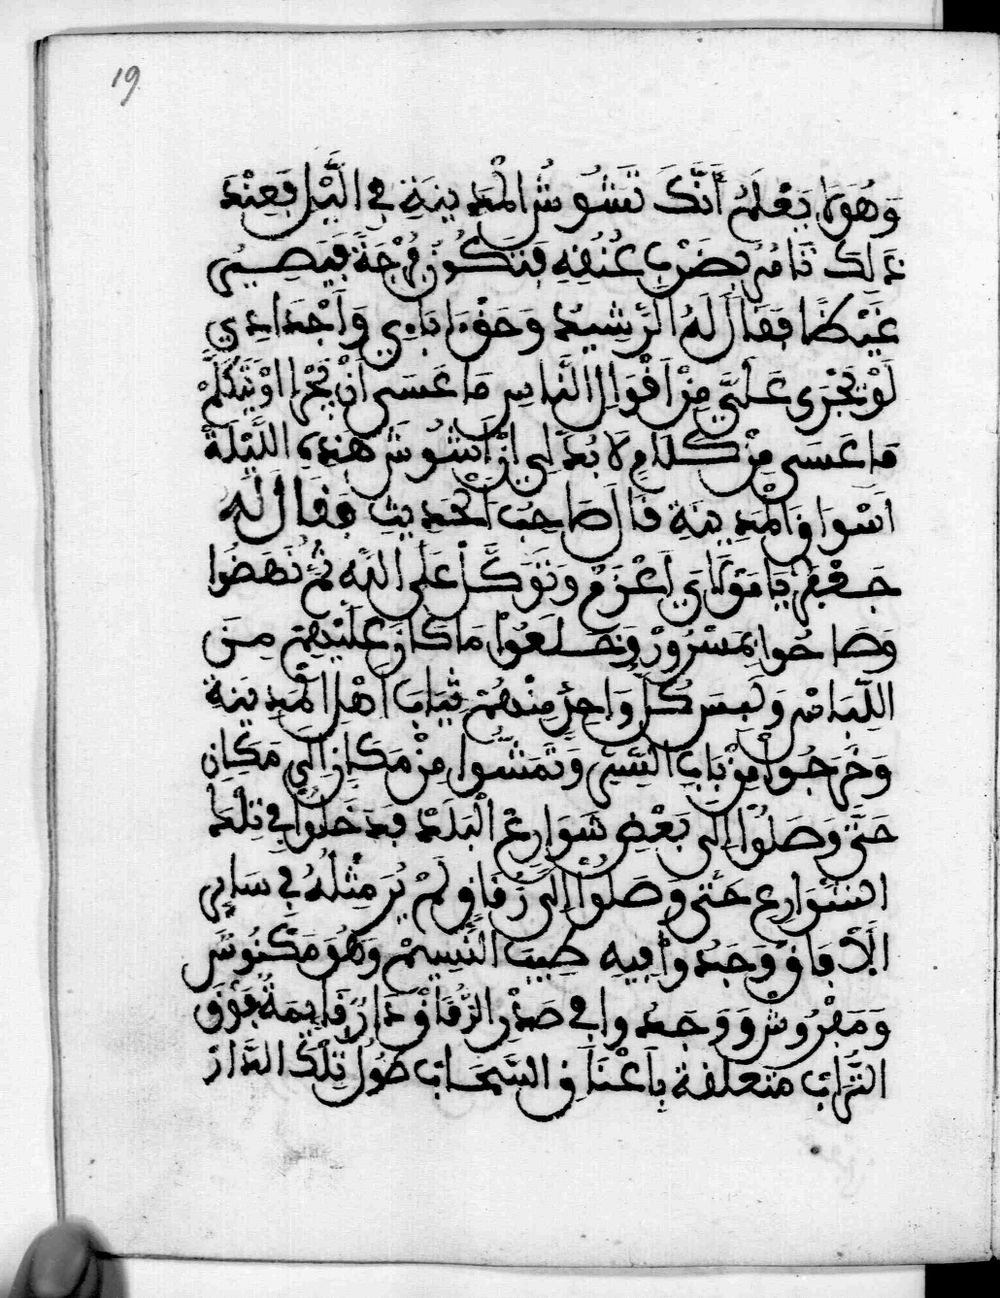 19
وَهُوَ لَا يَعْلَمُ أَنَّكَ تَشُوشُ الْمَدِينَةِ فِي الَّيْلِ فَعِنْدَ
ذَلِكَ تَامُرُ بِضَرْبِ عُنُقِهِ فَتَكُونُ فُرْجَةً فَيَصِيرُ
غَيْظًا فَقَالَ لَهُ الرَّشِيدُ وَحَقِّ ءَابَاءِي وَأَجْدَادِي
لَوْ تَجْرَى عَلَيَّ مِنْ أَقْوَالِ النَّاسِ مَا عَسَى أَنْ يَجْرَا أَوْ يَتَكَلَّمْ
مَا عَسَى مِنْ كَلَامٍ لَا بُدَّ لِي أَنْ أَشُوشَ هَذِهِ اللَّيْلَةَ
أَسْوَاقَ الْمَدِينَةِ قَالَ صَاحِبُ الْحَدِيثِ فَقَالَ لَهُ
جَعْفَرُ يَا مَوْلَايَ اعْزَمْ وَتَوَكَّلْ عَلَى اللَّهِ ثُمَّ نَهَضُوا
وَصَاحُوا بِمَسْرُورْ وَخَلَعُوا مَا كَانَ عَلَيْهِمْ مِنَ
اللِّبَاسِ وَلَبَسَ كُلُّ وَاحِدٍ مِنْهُمْ ثِيَابَ أَهْلِ الْمَدِينَةِ
وَخَرَجُوا مِنْ بَابِ السِّرِّ وَتَمَشَّوْا مِنْ مَكَانٍ إِلَى مَكَانٍ
حَتَّى وَصَلُوا إِلَى بَعْضِ شَوَارِعْ الْبَلَدْ فَدَخَلُوا فِي تِلْكَ
الشَّوَارِعِ حَتَّى وَصَلُوا إِلَى زُقَاقٍ لَمْ يُرَ مِثْلُهُ فِي سَايِرِ
الْآفَاقِ وَوَجَدُوا فِيهِ طِيبَ النَّسِيمْ وَهُوَ مَكْنُوسٌ
وَمَفْرُوشْ وَوَجَدُوا فِي صَدْرِ الزُّقَاقْ دَارٌ قَايِمَةٌ فَوْقَ
التُّرَابْ مُتَعَلِّقَةً بِأَعْنَاقِ السَّحَابْ طُولُ تِلْكَ الدَّارْ